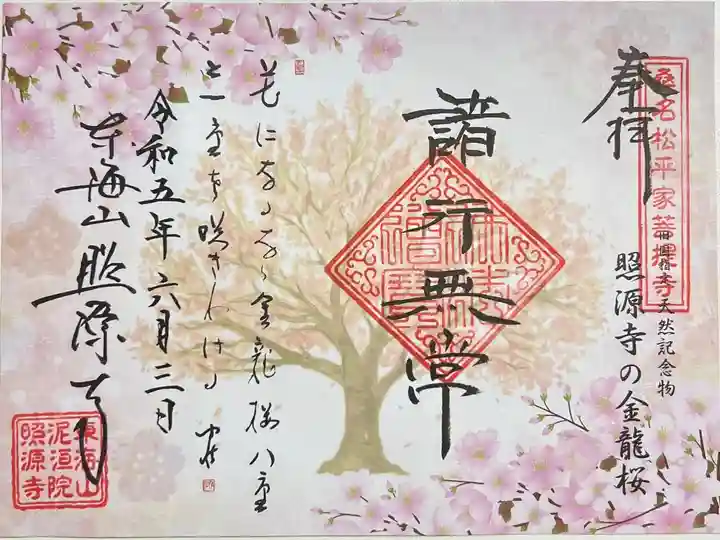 奉拝
桑名松平家菩提寺
天然記念物
照源寺の金龍桜
諸行無常
花になるなら金龍桜八重
も一重も咲きわける
令和五年六月三日
東海山照源寺
東海山
泥洹院
照源寺